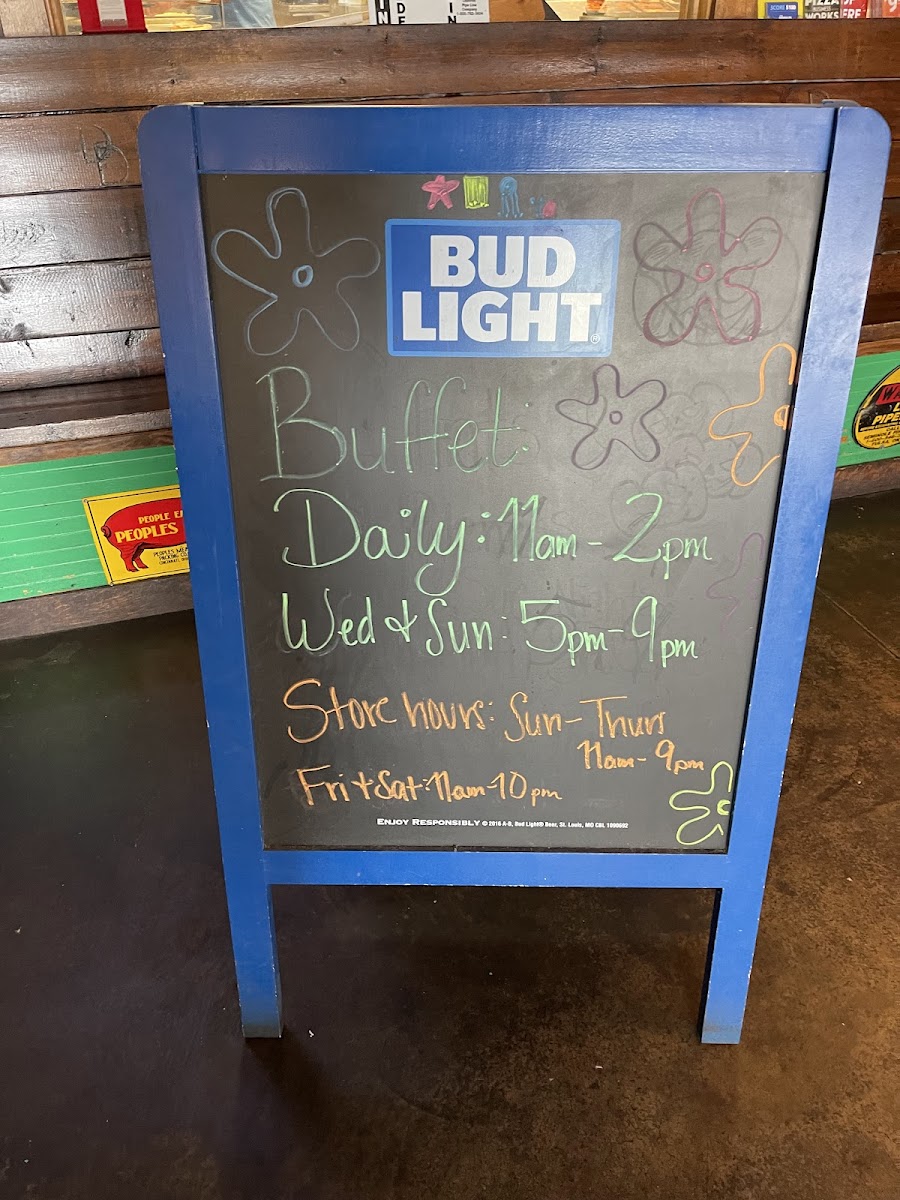 BUD
LIGHT®
Buffet:
Daily: 11am - 2pm
Wed & Sun: 5pm - 9pm
Store hours: Sun - Thurs
11am - 9pm
Fri + Sat: 11am - 10pm
ENJOY RESPONSIBLY © 2016 A-B, Bud Light® Beer, St. Louis, MO CBL 1000692
PEOPLE
PEOPLES
PIZZA
WORKS